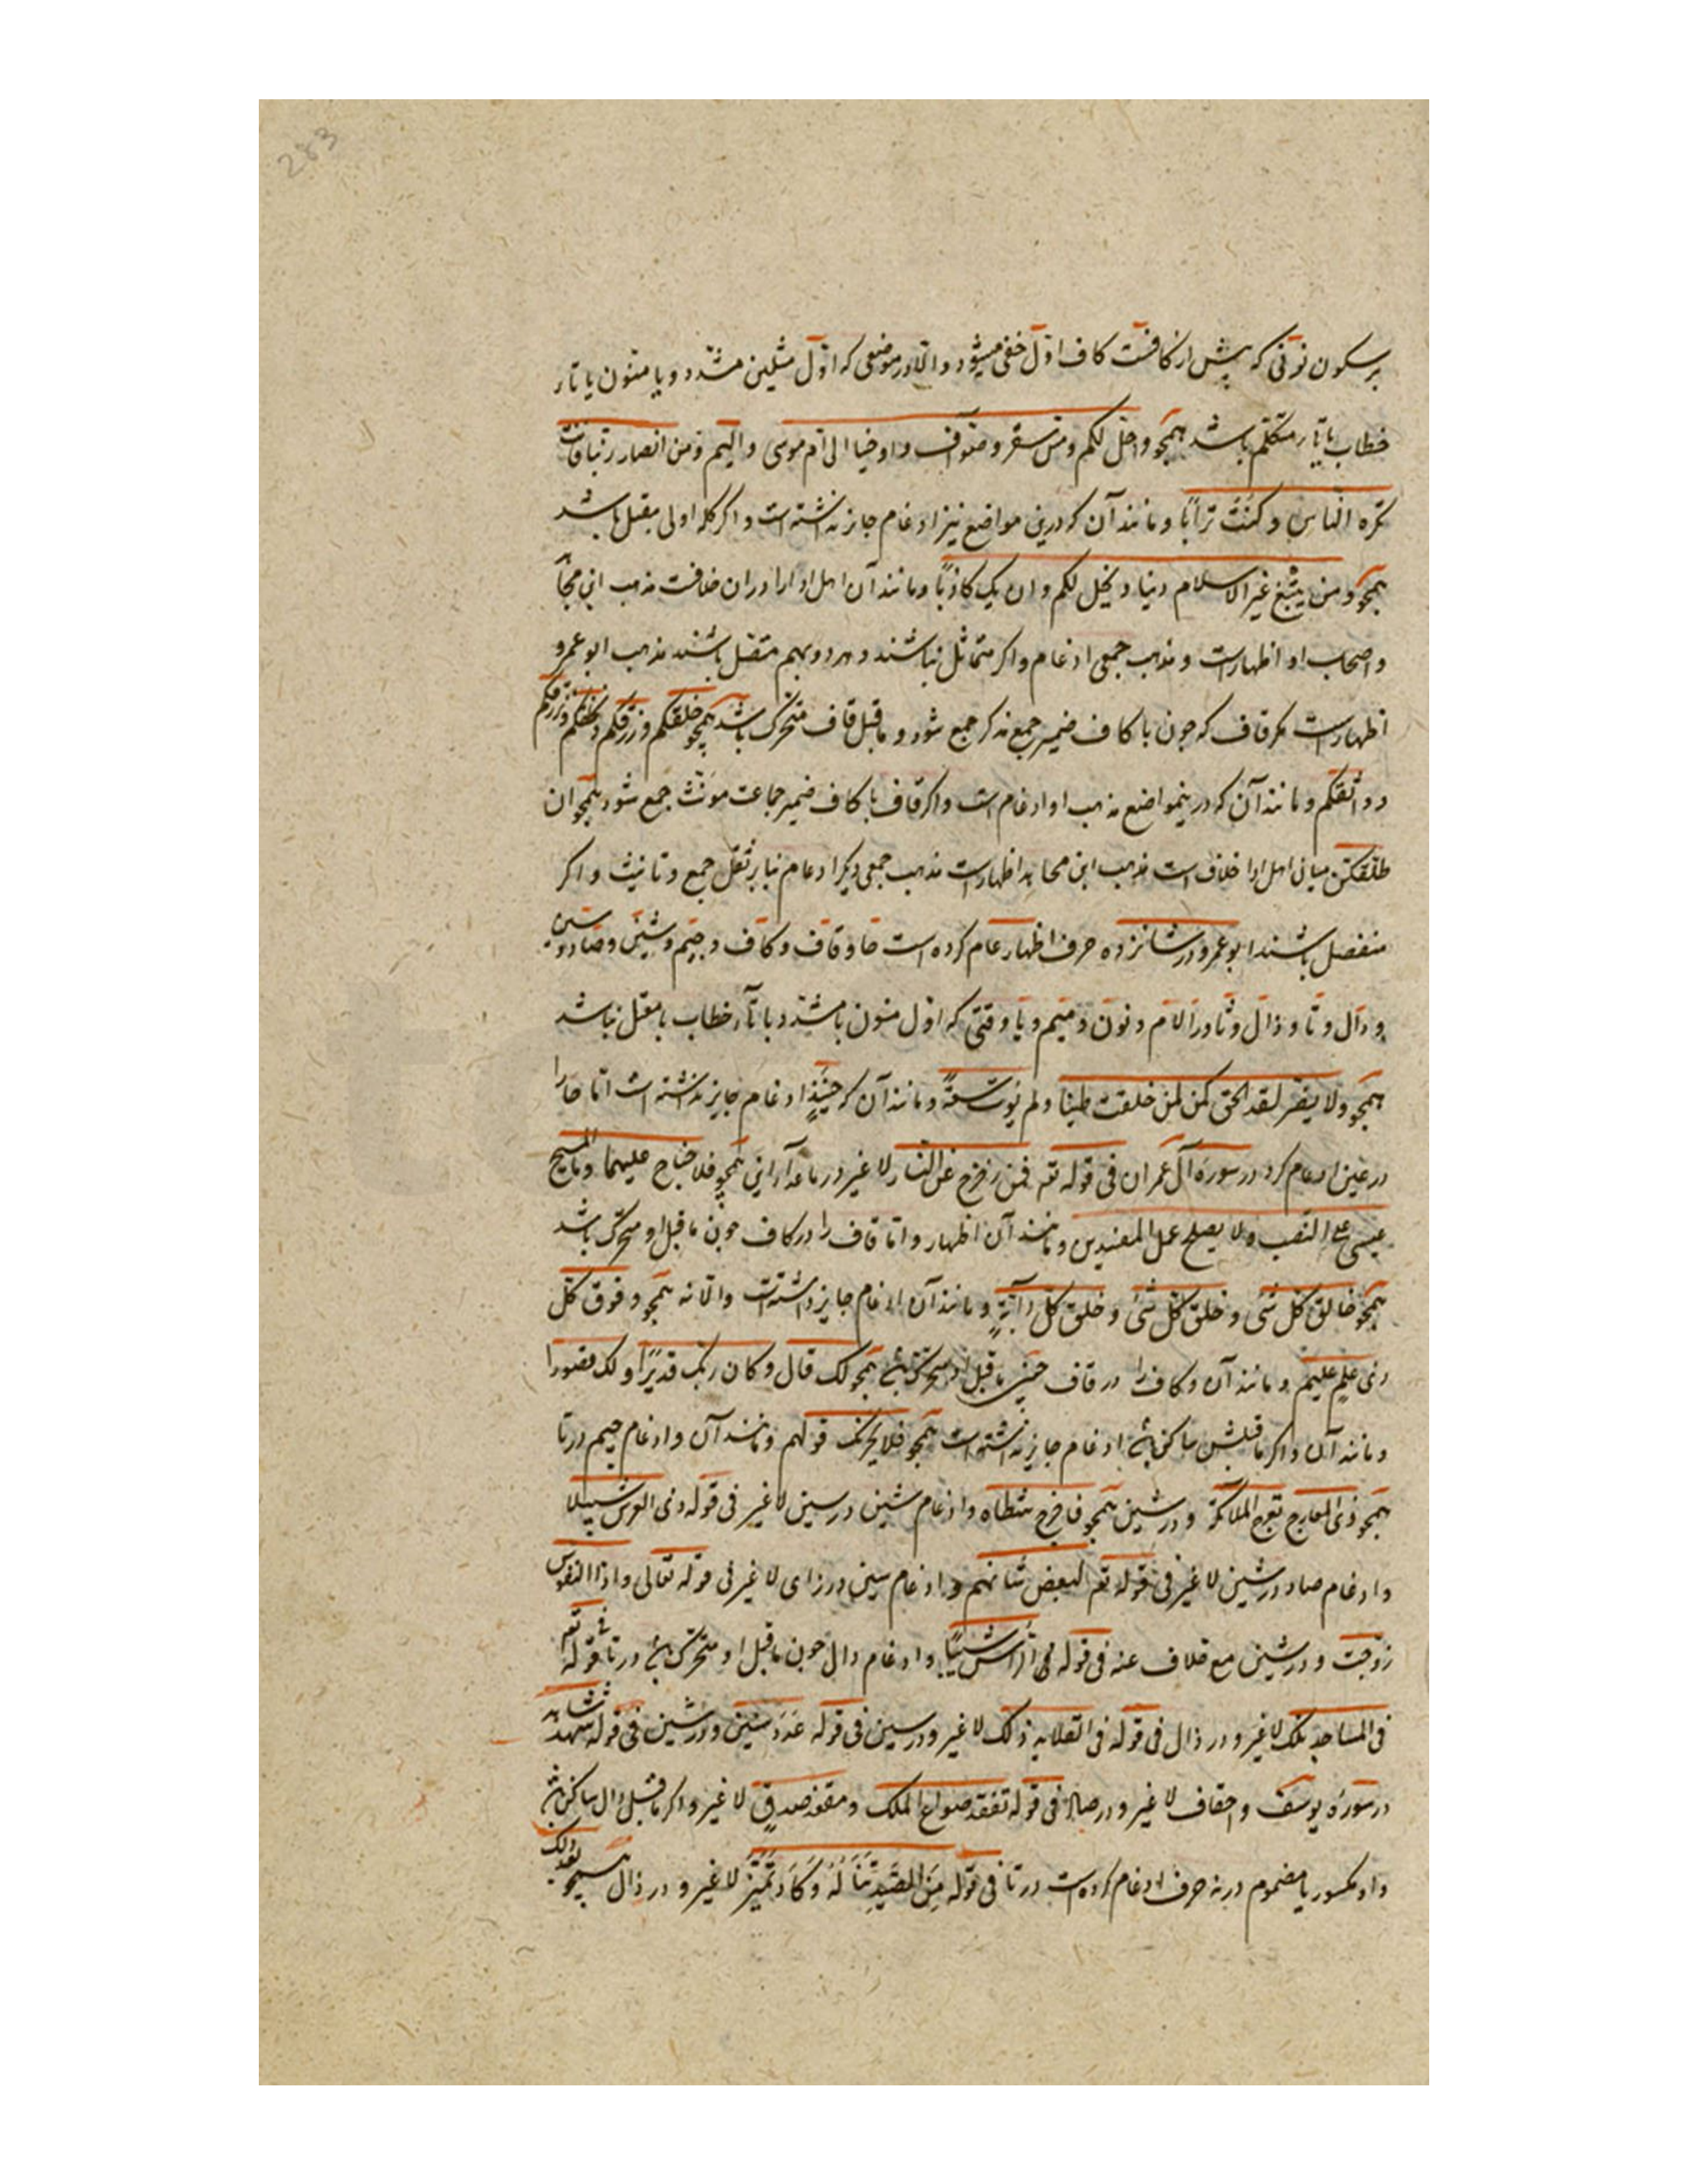 283
بر سکون نونی که پیش از کافست کاف اول خفی میشود و الا در موضعی که اول مثلین مشدد و یا منون یا تار
خطاب یا تار متکلم باشد همچو واحل لکم و مس سقر و صواف و اوحینا الی ام موسی و الیم و من انصار ربنا فانت
تکره الناس و کنت ترابا و مانند آن که درین مواضع نیز ادغام جایز نداشته است و اگر کلمه اولی معتل باشد
همچو و من یبتغ غیر الاسلام دینا و یخل لکم و ان یک کاذبا و مانند آن اهل ادا را در ان خلافست مذهب ابن مجا
و اصحاب او اظهارست و مذهب جمعی ادغام و اگر متماثل نباشند و هر دو بهم متصل باشند مذهب ابو عمرو
اظهارست مگر قاف که چون با کاف ضمیر جمع مذکر جمع شود و ماقبل قاف متحرک باشد همچو خلقکم و رزقکم و یخلقکم و یرزقکم
و واثقکم و مانند آن که درینمواضع مذهب او ادغام است و اگر قاف با کاف ضمیر جماعت مونث جمع شود همچو ان
طلقکن میان اهل ادا خلاف است مذهب ابن مجاهد اظهارست مذهب جمعی دیگر ادغام بنا بر ثقل جمع و تانیث و اگر
منفصل باشند ابو عمرو در شانزده حرف اظهار عام کرده است حا و قاف و کاف و جیم و شین و صاد و سین
و دال و تا و ذال و ثا و را لام و نون و میم و با وقتی که اول منون یا مشدد یا تار خطاب یا معتل نباشد
همچو و لا نصیر لقد الحق کمن لمن خلقت طینا و لم یوت سعة و مانند آن که حینئذ ادغام جایز نداشته است اما حا را
در عین ادغام کرد در سورة آل عمران فی قوله تعه فمن زحزح عن النار لا غیر در ماعدا این همچو فلا جناح علیهما و المسیح
عیسی علی النصب و لا یصلح عمل المفسدین و مانند آن اظهار و اما قاف را در کاف چون ماقبل او متحرک باشد
همچو خالق کل شی و خلق کل شی و خلق کل دابة و مانند آن ادغام جایز داشتست و الا نه همچو و فوق کل
ذی علم علیم و مانند آن و کاف را در قاف حین ماقبل او متحرک باشد همچو لک قال و کان ربک قدیرا و لک قصورا
و مانند آن و اگر ماقبلش ساکن باشد ادغام جایز نداشته است همچو فلا یحزنک قولهم و مانند آن و ادغام جیم در تا
همچو ذی المعارج تعرج الملائکة و در شین همچو فاخرج شطاه و ادغام شین در سین لا غیر فی قوله ذی العرش سبیلا
و ادغام ضاد در شین لا غیر فی قوله تعه لبعض شانهم و ادغام سین در زای لا غیر فی قوله تعالی و اذا النفوس
زوجت و در شین مع خلاف عنه فی قوله الراس شیبا و ادغام دال چون ماقبل او متحرک باشد در تا فی قوله تعه
فی المساجد تلک لا غیر و در ذال فی قوله فی القلاید ذلک لا غیر و در سین فی قوله عدد سنین و در شین فی قوله شهد شاهد
در سورة یوسف و احقاف لا غیر و در صاد فی قوله تفقد صواع الملک و مقعد صدق لا غیر و اگر ماقبل دال ساکن باشد
و او مکسور یا مضموم در نه حرف ادغام کرده است در تا فی قوله من الصید تناله و کاد تمیز لا غیر و در ذال همچو بعد ذلک